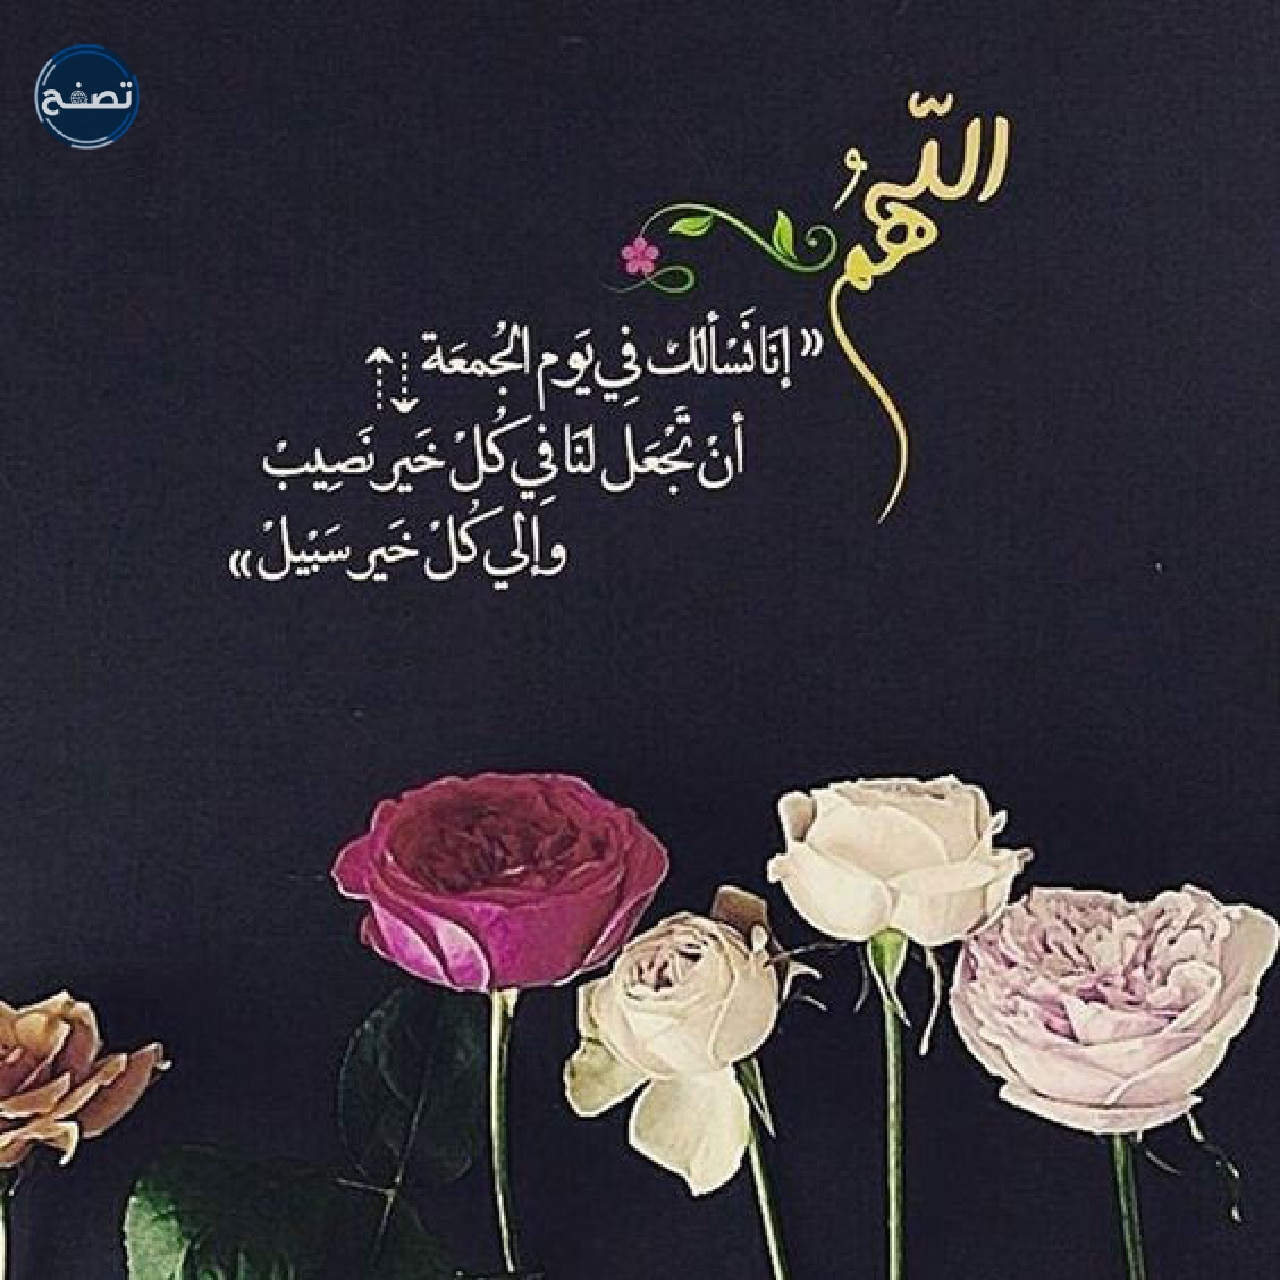 تصفح
اللّهُم
« إنَا نَسْألك فِي يَوم الجُمعَة
أنْ تَجْعَل لنَا فِي كُلْ خَير نَصِيبْ
وإلي كُلْ خَير سَبْيلْ »